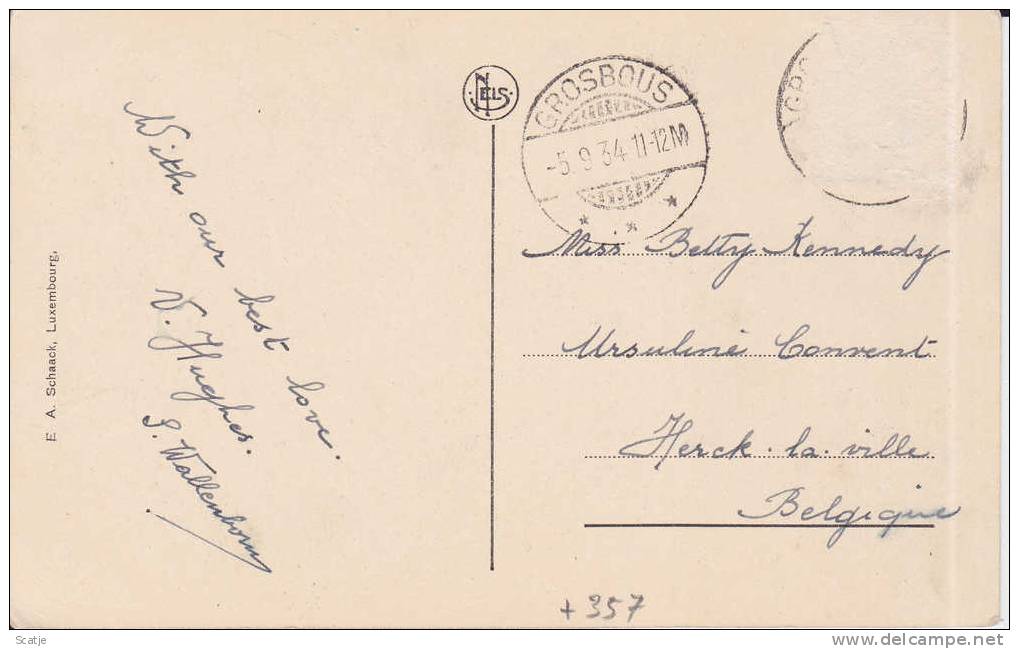 With our best love.
V. Hughes.
S. Wallenborn
E. A. Schaack, Luxembourg.
NELS
GROSBOUS
-5. 9 34 11-12M
GRO
Miss Betty Kennedy
Ursuline Convent
Herck-la-ville
Belgique
+357
Scatje
www.delcampe.net